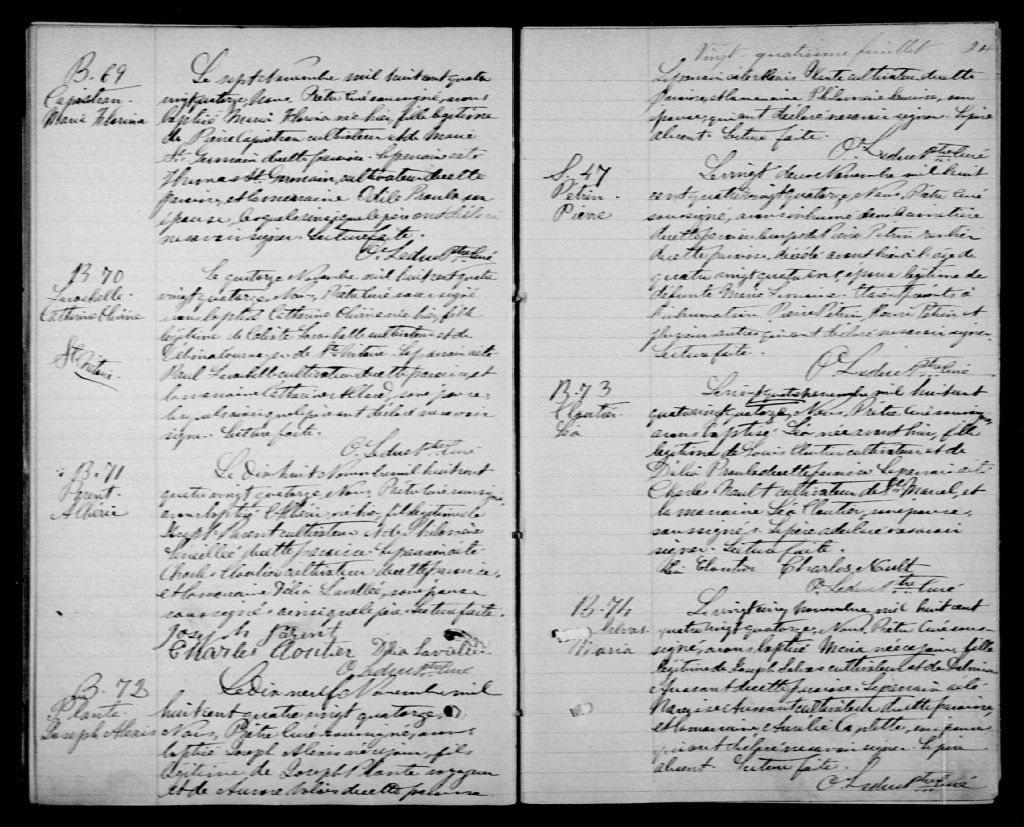 B. 69
Capistran
Marie Florina
Le sept Novembre mil huit cent quatre
vingt quatorze, Nous, Prêtre Curé soussigné, avons
baptisé Marie Florina née hier, fille légitime
de Pierre Capistran cultivateur et de Marie
St Germain de cette paroisse. Le parrain a été
Thomas St Germain, cultivateur de cette
paroisse, et la marraine Odile Proulx son
épouse, lesquels ainsi que le père ont déclaré
ne savoir signer. Lecture faite.
O. Leduc Ptre Curé
B. 70
Larochelle
Catherine
St Antoine
Le quatorze Novembre mil huit cent quatre
vingt quatorze, Nous, Prêtre Curé soussigné
avons baptisé Catherine née hier, fille
légitime de Céleste Larochelle cultivateur et de
Délina de St Antoine. Le parrain a été
Paul Larochelle cultivateur de cette paroisse, et
la marraine Catherine Allard, son épouse
lesquels ainsi que le père ont déclaré ne savoir
signer. Lecture faite.
O. Leduc Ptre Curé
B. 71
Parent
Albéric
Le Dix huit Novembre mil huit cent
quatre vingt quatorze, Nous, Prêtre Curé soussigné
avons baptisé Albéric, né hier, fils légitime de
Joseph Parent cultivateur et de Philomène
Lavallée de cette paroisse. Le parrain a été
Charles Cloutier cultivateur de cette paroisse,
et la marraine Délia Lavallée, son épouse
soussignés ainsi que le père. Lecture faite.
Joseph Parent
Charles Cloutier Délia Lavallée
O. Leduc Ptre Curé
B. 72
Plante
Joseph Alexis
Le Dix neuf Novembre mil
huit cent quatre vingt quatorze,
Nous, Prêtre Curé soussigné, avons
baptisé Joseph Alexis né ce jour, fils
légitime, de Joseph Plante voyageur
et de Aurore Valois de cette paroisse.
Vingt quatrième feuillet 24
Le parrain a été Alexis Plante cultivateur de cette
paroisse, et la marraine Philomène son
épouse, qui ont déclaré ne savoir signer. Le père
absent. Lecture faite.
O. Leduc Ptre Curé
S. 47
Petrin
Pierre
Le vingt deux Novembre mil huit
cent quatre vingt quatorze, Nous, Prêtre Curé
soussigné, avons inhumé dans le cimetière
de cette paroisse le corps de Pierre Petrin rentier
de cette paroisse, décédé avant hier à l'âge de
quatre vingt quatre ans, époux légitime de
défunte Marie Simoins. Etaient présents à
l'inhumation Pierre Petrin, Henri Petrin et
plusieurs autres qui ont déclaré ne savoir signer.
Lecture faite.
O. Leduc Ptre Curé
B. 73
Cloutier
Léa
Le vingt quatre novembre mil huit cent
quatre vingt quatorze, Nous, Prêtre Curé soussigné
avons baptisé Léa née avant hier, fille
légitime de Louis Cloutier cultivateur et de
Délia Proulx de cette paroisse. Le parrain a été
Charles Nault cultivateur de St Marcel, et
la marraine Léa Cloutier, son épouse,
soussignés. Le père a déclaré ne savoir
signer. Lecture faite.
Léa Cloutier Charles Nault
O. Leduc Ptre Curé
B. 74
Salvas
Maria
Le vingt cinq novembre, mil huit cent
quatre vingt quatorze, Nous, Prêtre Curé sous-
signé, avons baptisé Maria née ce jour, fille
légitime de Joseph Salvas cultivateur et de
Aussant de cette paroisse. Le parrain a été
Narcisse Aussant cultivateur de cette paroisse,
et la marraine, Aurélie Caplette, son épouse
qui ont déclaré ne savoir signer. Le père
absent. Lecture faite.
O. Leduc Ptre Curé